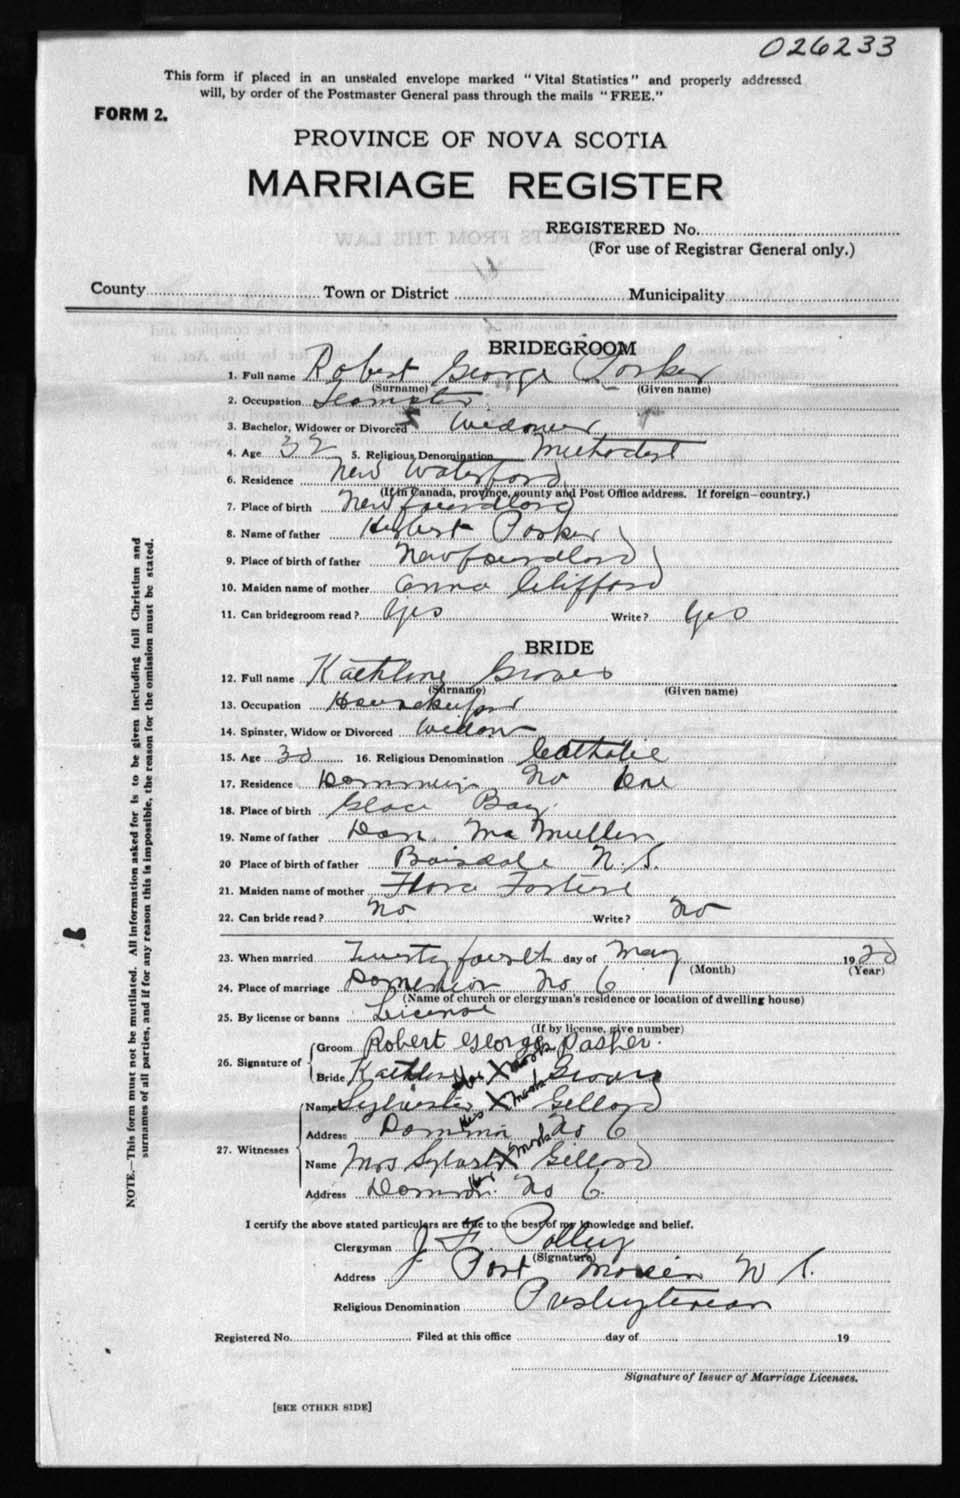 026233
This form if placed in an unsealed envelope marked "Vital Statistics" and properly addressed
will, by order of the Postmaster General pass through the mails "FREE."
FORM 2.
PROVINCE OF NOVA SCOTIA
MARRIAGE REGISTER
REGISTERED No.
(For use of Registrar General only.)
County Town or District Municipality
BRIDEGROOM
1. Full name Robert George
(Surname) (Given name)
2. Occupation Teamster
3. Bachelor, Widower or Divorced Widower
4. Age 32 5. Religious Denomination Methodist
6. Residence New Waterford
(If in Canada, province, county and Post Office address. If foreign—country.)
7. Place of birth Newfoundland
8. Name of father Herbert
9. Place of birth of father Newfoundland
10. Maiden name of mother Anna Clifford
11. Can bridegroom read? Yes Write? Yes
BRIDE
12. Full name Kathline Groves
(Surname) (Given name)
13. Occupation
14. Spinster, Widow or Divorced Widow
15. Age 30 16. Religious Denomination Catholic
17. Residence Dominion No
18. Place of birth Glace Bay
19. Name of father Dan McMullen
20 Place of birth of father Boisdale N. S.
21. Maiden name of mother Flora
22. Can bride read? No Write? No
23. When married Twenty fourth day of May 1920
(Month) (Year)
24. Place of marriage Dominion No 6
(Name of church or clergyman's residence or location of dwelling house)
25. By license or banns License
(If by license, give number)
26. Signature of
Groom Robert George
Bride Kathline her X mark Groves
27. Witnesses
Name Sylvester his X mark
Address Dominion No 6
Name Mrs Sylvester her X mark
Address Dominion No 6.
I certify the above stated particulars are true to the best of my knowledge and belief.
Clergyman J. F. Polley
(Signature)
Address Port Morien N S.
Religious Denomination Presbyterian
Registered No. Filed at this office day of 19
Signature of Issuer of Marriage Licenses.
[SEE OTHER SIDE]
NOTE.—This form must not be mutilated. All information asked for is to be given including full Christian and
surnames of all parties, and if for any reason this is impossible, the reason for the omission must be stated.